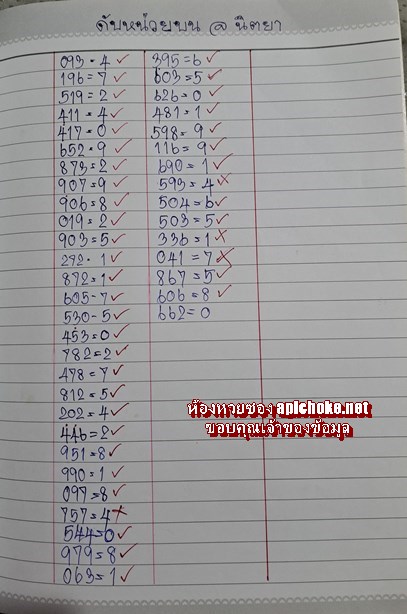 ดับหน่วยบน @ นิตยา
093 = 4 ✓
196 = 7 ✓
519 = 2 ✓
411 = 4 ✓
417 = 0 ✓
652 = 9 ✓
873 = 2 ✓
907 = 9 ✓
906 = 8 ✓
019 = 2 ✓
903 = 5 ✓
272 = 1 ✓
872 = 1 ✓
605 - 7 ✓
530 - 5 ✓
453 = 0 ✓
782 = 2 ✓
478 = 7 ✓
812 = 5 ✓
202 = 4 ✓
446 = 2 ✓
951 = 8 ✓
990 = 1 ✓
097 = 8 ✓
757 = 4 ✗
544 = 0 ✓
979 = 8 ✓
063 = 1 ✓
395 = 6 ✓
603 = 5 ✓
626 = 0 ✓
481 = 1 ✓
598 = 9 ✓
116 = 9 ✓
690 = 1 ✓
593 = 4 ✗
504 = 6 ✓
503 = 5 ✓
336 = 1 ✗
041 = 7 ✗
867 = 5 ✓
606 = 8 ✓
662 = 0
ห้องหวยซอง apichoke.net
ขอบคุณเจ้าของข้อมูล